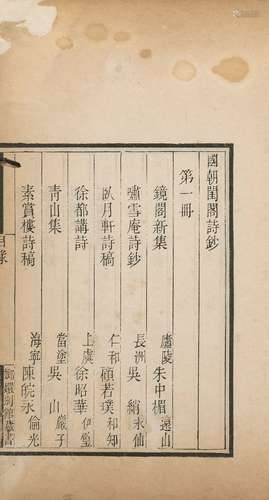 國朝閨閣詩鈔
第一冊
鏡閣新集　廬陵朱中楣遠山
嘯雪庵詩鈔　長洲吳綃永仙
臥月軒詩稿　仁和顧若璞和知
徐都講詩　上虞徐昭華伊璧
青山集　當塗吳山巖子
素賞樓詩稿　海寧陳皖永倫光
目錄
嫏嬛別館藏書